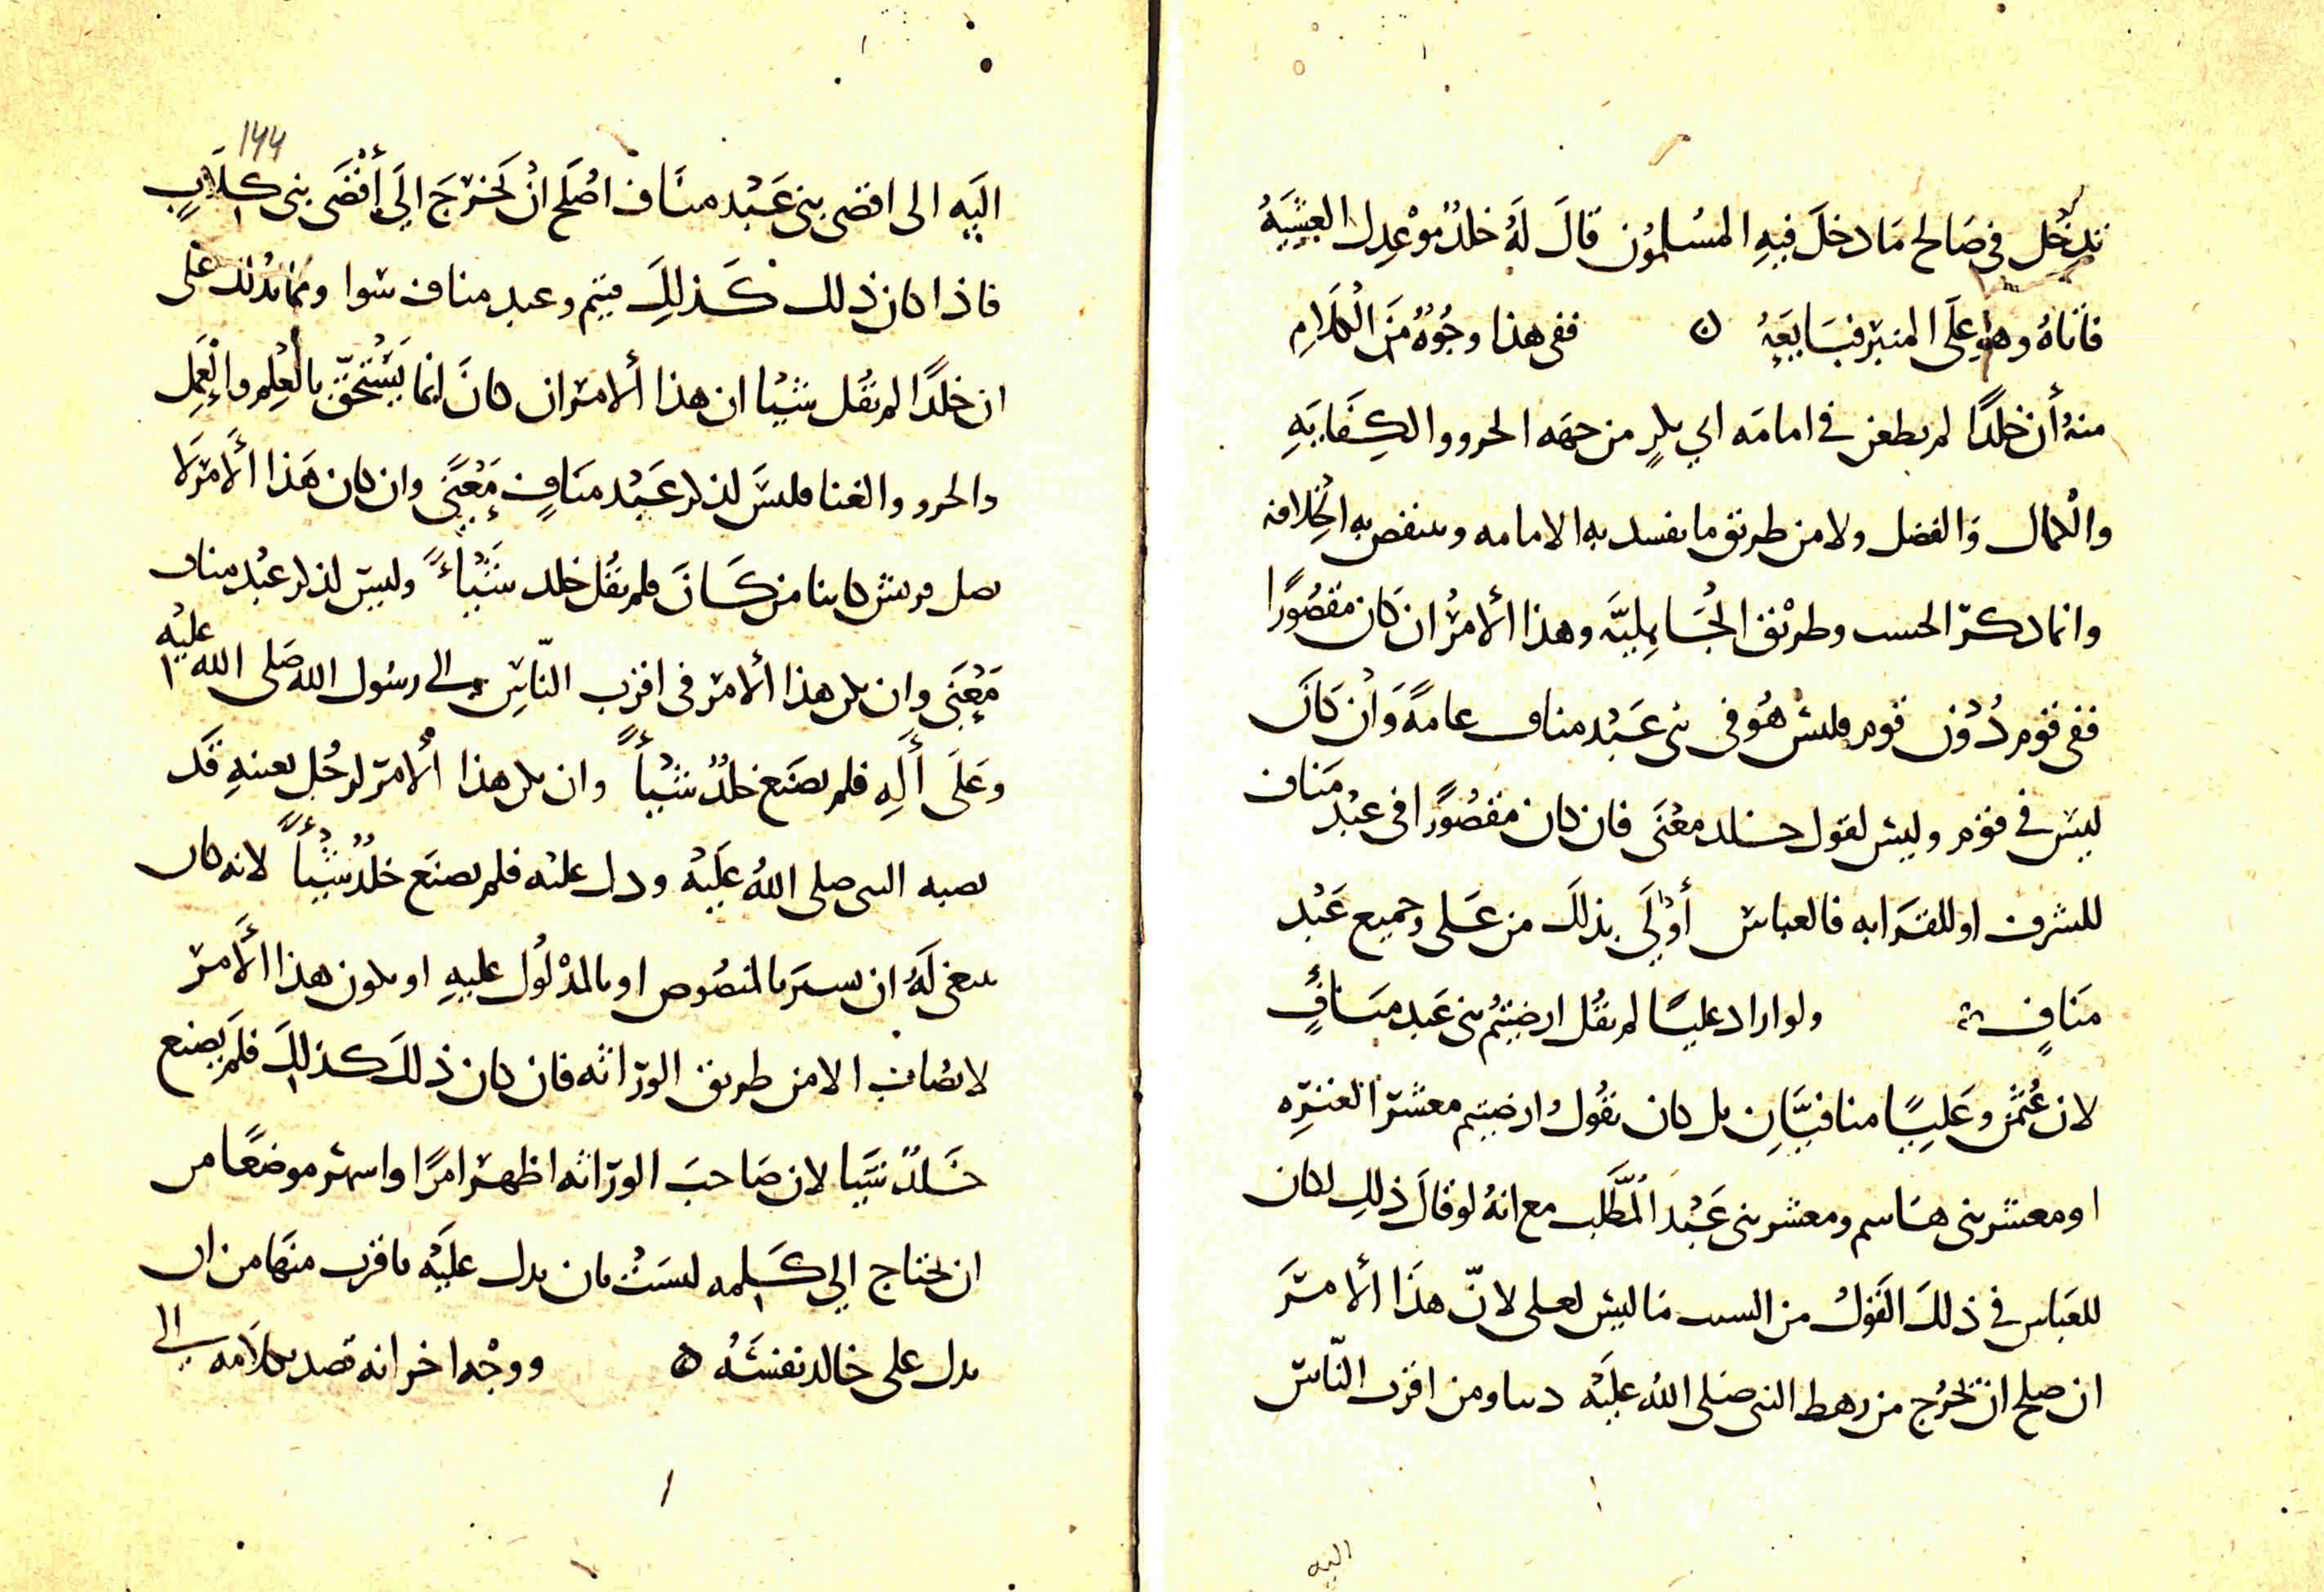 تدخل في صالح ما دخل فيه المسلمون قال له خلد موعدك العشية
فاتاه وهو على المنبر فبايعه ن ففي هذا وجوه من الكلام
منه أن خلدًا لم يطعن في امامه ابي بكرٍ من جهه الجرو والكفايه
والكمال والفضل ولا من طريق ما يفسد به الامامه وينقض به الخلافه
وانما دكر الحسب وطريق الجاهليّه وهذا الأمر ان كان مقصورًا
ففي قوم دون قوم فليس هو في بني عبد مناف عامةً وان كان
ليس في قوم وليس لقول خلد معنى فان كان مقصورًا في عبد مناف
للشرف او للقرابه فالعباس أولى بذلك من علي وجميع عبد
منافٍ ولو اراد عليًا لم يقل ارضيتم بني عبد منافٍ
لان عثمن وعليًا منافيّان بل كان يقول ارضيتم معشر العتره
او معشر بني هاسم ومعشر بني عبد المطّلب مع انه لو قال ذلك لكان
للعباس في ذلك القول من السبب ما ليس لعلي لانّ هذا الأمر
ان صلح ان يخرج من رهط النبي صلى الله عليه دنيا ومن اقرب الناس
اليه
١٤٤
اليه الى اقصى بني عبد مناف اصلح ان يخرج الي أقصى بني كلابٍ
فاذا كان ذلك كذلك فتيم وعبد مناف سوا ومما يدلك على
ان خلدًا لم يقل شيا ان هذا ألامر ان كان انما يستحقّ بالعلم والعمل
والجرو والغنا فليس لذكر عبد منافٍ معنًى وان كان هذا ألامر لا
قريش كاينا من كان فلم يقل خلد شيأً وليس لذكر عبد مناف
معنى وان يكن هذا ألامر في اقرب النّاس الى رسول الله صلى الله عليه
وعلى أله فلم يصنع خلدٌ شيأً وان يكن هذا ألامر لرجل بعينه قد
نصبه النبي صلى الله عليه ودل عليه فلم يصنع خلدٌ شيأً لانه كان
ينبغي له ان يسير بالمنصوص او بالمدلول عليه او يكون هذا الأمر
لا يصاب الا من طريق الوراثه فان كان ذلك كذلك فلم يصنع
خلدٌ شيا لان صاحب الوراثه اظهر امرًا واشهر موضعًا من
ان يحتاج الى كلمه ليست بان يدل عليه باقرب منها من ان
يدل على خالد نفسه ه ووجه اخر انه قصد بكلامه الى